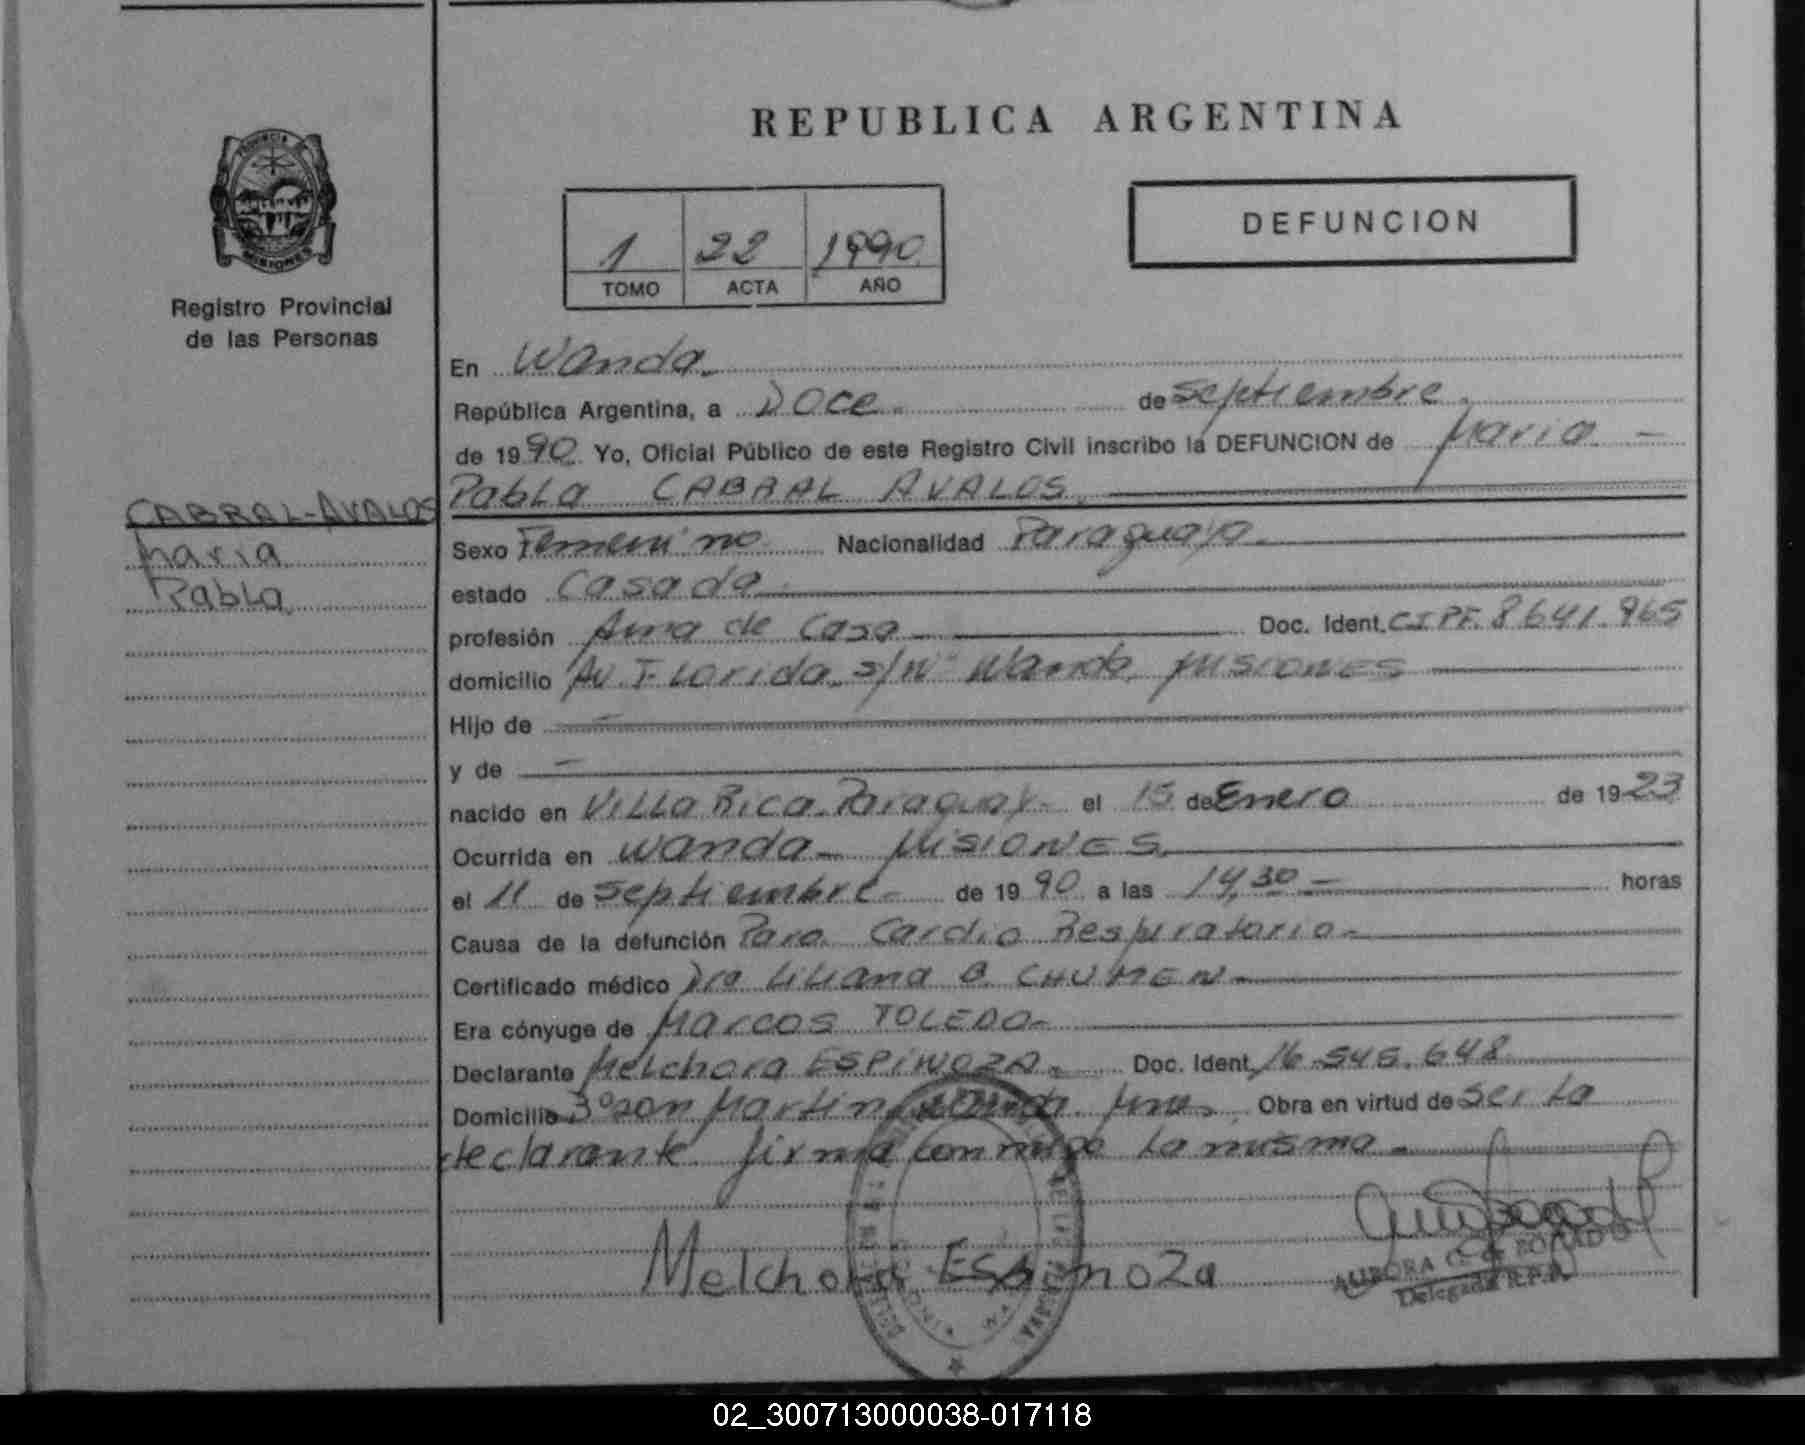 REPUBLICA ARGENTINA
PROVINCIA DE
MISIONES
Registro Provincial
de las Personas
1 22 1990
TOMO ACTA AÑO
DEFUNCION
En Wanda.
República Argentina, a Doce. de septiembre.
de 1990. Yo, Oficial Público de este Registro Civil inscribo la DEFUNCION de Maria -
Pabla CABRAL AVALOS.
CABRAL-AVALOS
Maria
Pabla
Sexo Femenino. Nacionalidad Paraguaya.
estado Casada.
profesión Ama de Casa Doc. Ident. C.I.P.F. 8641.965
domicilio Av. Florida s/Nº Wanda. Misiones
Hijo de -
y de -
nacido en Villa Rica. Paraguay- el 15 de Enero de 1923
Ocurrida en Wanda- MISIONES.
el 11 de septiembre- de 1990 a las 14,30- horas
Causa de la defunción Paro Cardio Respiratorio-
Certificado médico Dra Liliana B. CHUMEN-
Era cónyuge de Marcos TOLEDO-
Declarante Melchora ESPINOZA. Doc. Ident. 16.545.648
Domicilio San Martin Wanda. Mnes. Obra en virtud de ser la
declarante firma conmigo la misma.-
Melchora ESpinoza
AURORA
Delegada R.P.P.
02_300713000038-017118